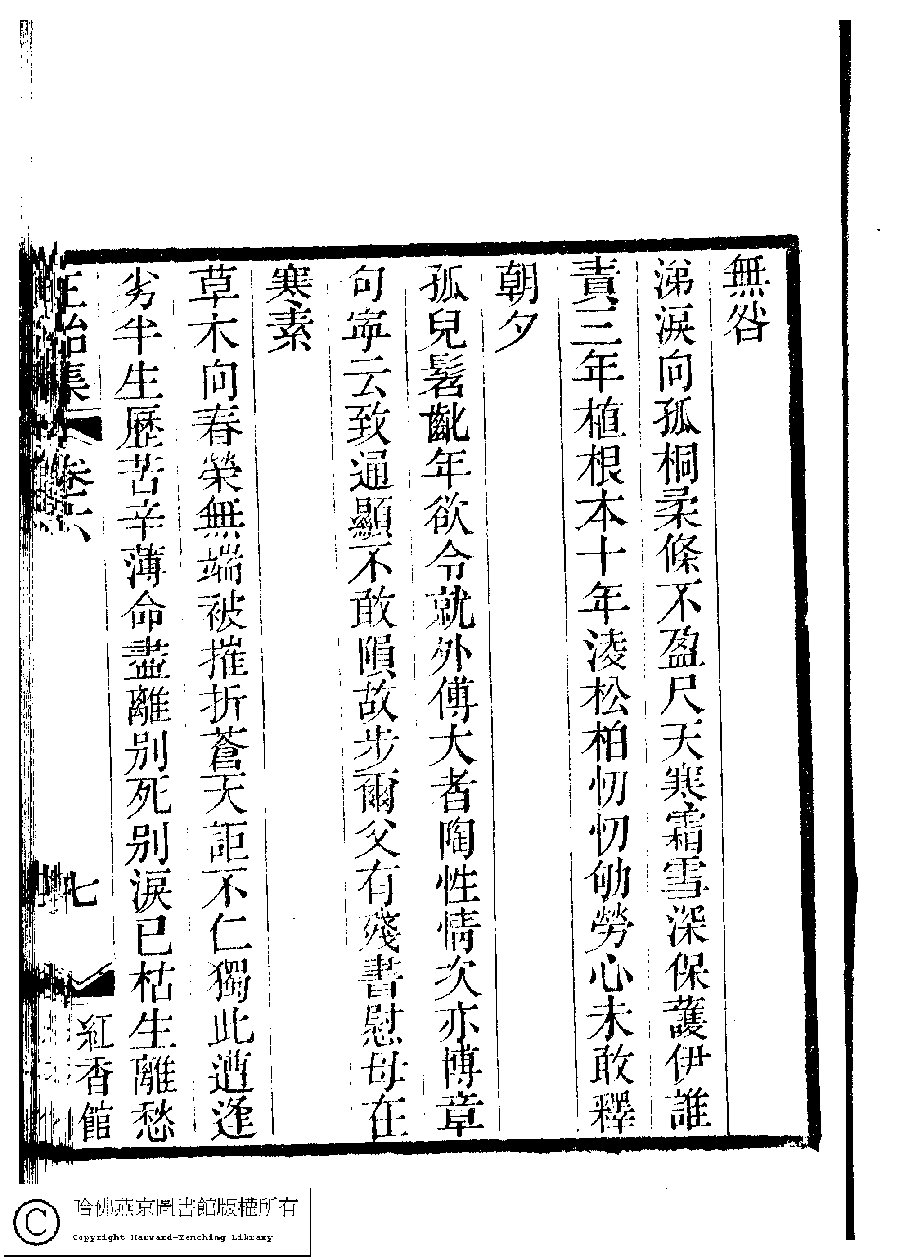 無咎
涕淚向孤桐柔條不盈尺天寒霜雪深保護伊誰
責三年植根本十年淩松柏忉忉劬勞心未敢釋
朝夕
孤兒髫齔年欲令就外傅大者陶性情次亦博章
句寧云致通顯不敢隕故步爾父有殘書慰母在
寒素
草木向春榮無端被摧折蒼天詎不仁獨此遭逢
劣半生歷苦辛薄命盡離別死別淚已枯生離愁
正始集 卷六
七 紅香館
哈佛燕京圖書館版權所有
Copyright Harvard-Yenching Library